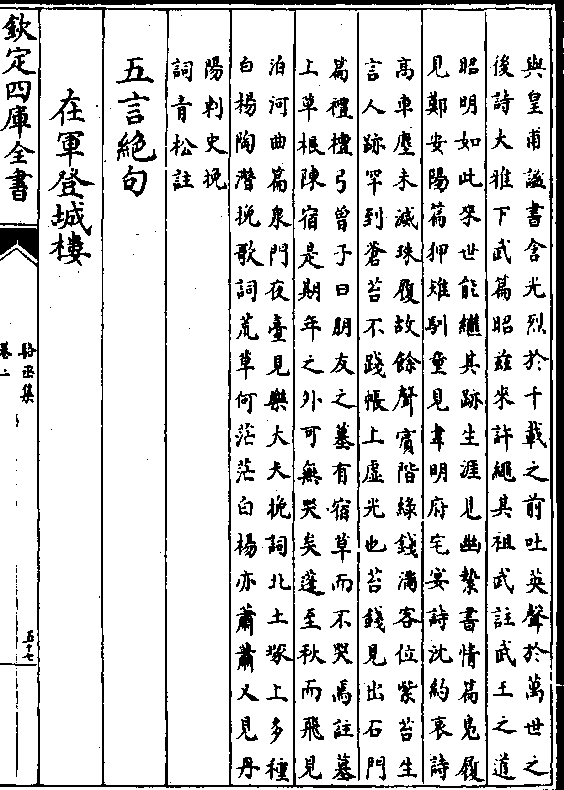 與皇甫謐書含光烈於千載之前吐英聲於萬世之
後詩大雅下武篇昭兹来許繩其祖武註武王之道
昭明如此累世能繼其跡生涯見幽縶書情篇鳧履
見鄭安陽篇狎雉馴童見韋明府宅宴詩沈約哀詩
高車塵未滅珠履故餘聲賓階綠錢滿客位紫苔生
言人跡罕到蒼苔不踐帳上虛光也苔錢見出石門
篇禮檀弓曾子曰朋友之墓有宿草而不哭焉註墓
上草根陳宿是期年之外可無哭矣蓬至秋而飛見
泊河曲篇泉門夜臺見樂大夫挽詞北土塚上多種
白楊陶潛挽歌詞荒草何茫茫白楊亦蕭蕭又見丹
陽刺史挽
詞青松註
五言絶句
在軍登城樓
欽定四庫全書
駱丞集
卷二
五十七